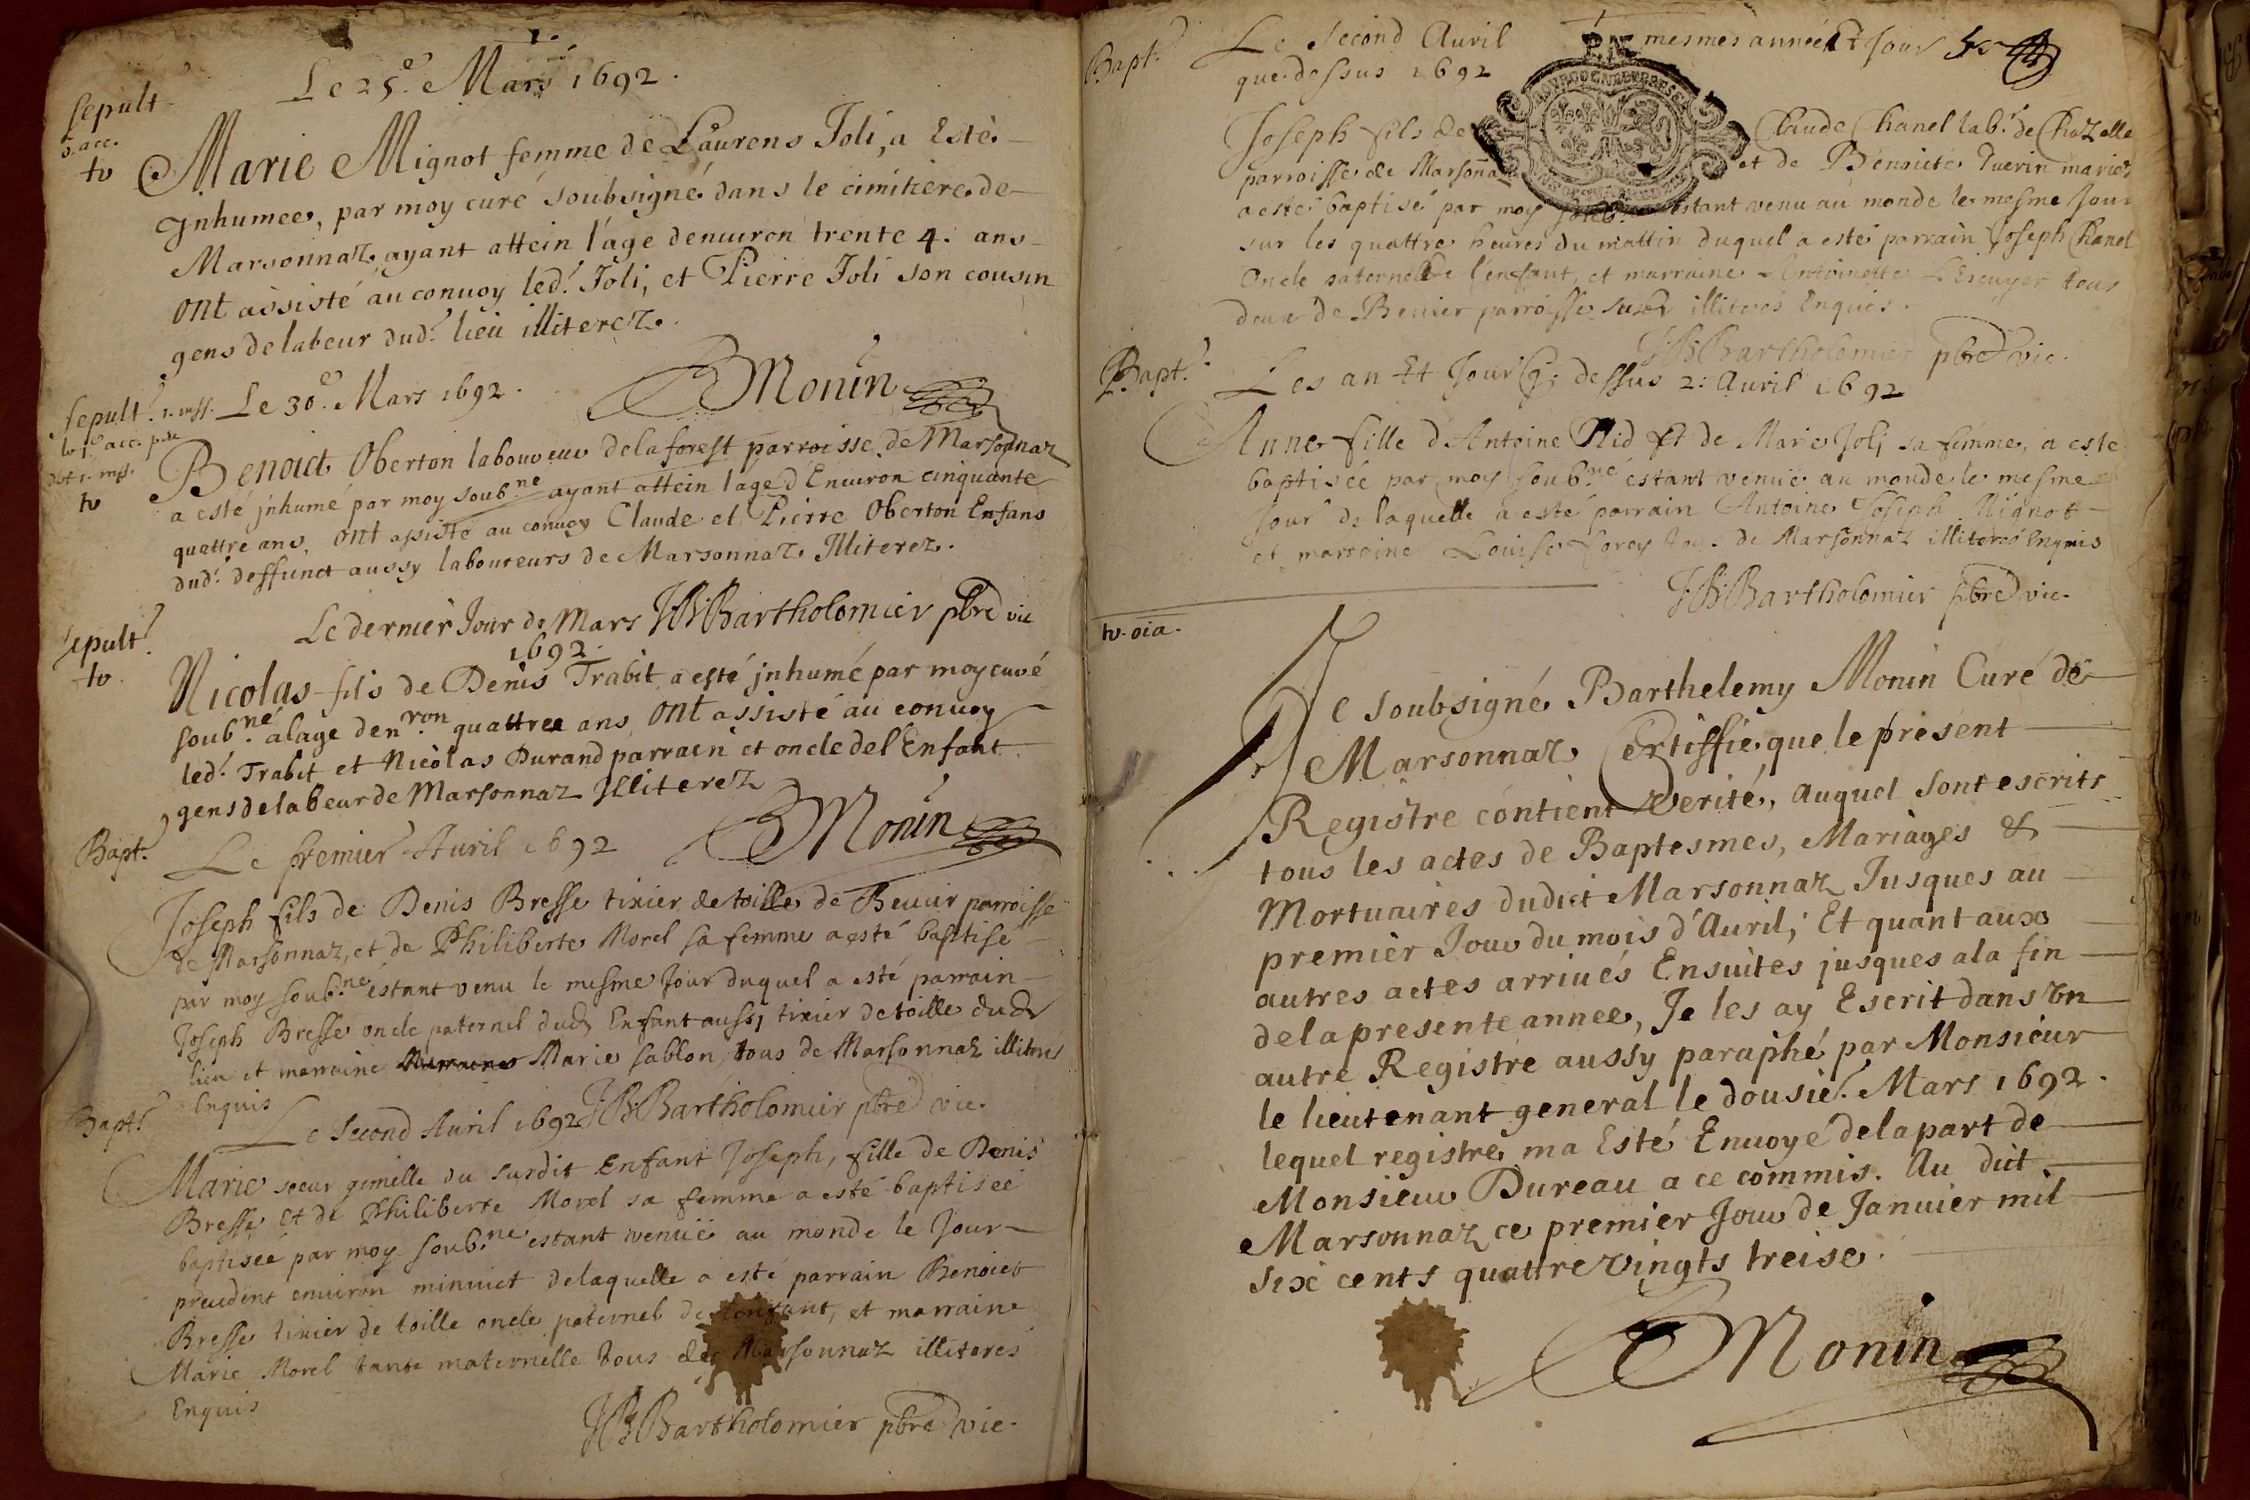 1.
Le 25e. Mars 1692.
sepult
s. acc.
tv
Marie Mignot femme de Laurens Joli, a Esté
Jnhumee, par moy curé soubsigné dans le cimitiere de
Marsonnaz, ayant attein l'age denuiron trente 4. ans
ont assisté au conuoy led.t Joli, et Pierre Joli son cousin
gens de labeur dud.t lieu illiterez.
BMonin
sepult.
Le 30e. Mars 1692.
tv
Benoict Oberton laboureur de la forest parroisse de Marsonnaz
a esté jnhumé par moy soub.né ayant attein lage d'Enuiron cinquante
quattre ans, ont assisté au conuoy Claude et Pierre Oberton Enfans
dud.t deffunct aussy laboureurs de Marsonnaz Illiterez.
JBBartholomier pbre vic
sepult.
tv
Le dernier Jour de Mars
1692.
Nicolas fils de Denis Trabit a esté jnhumé par moy curé
soub.né a lage den.ron quattre ans, ont assisté au conuoy
led.t Trabit et Nicolas Durand parrain et oncle de l'Enfant
gens de labeur de Marsonnaz Illiterez
BMonin
Bapt.
Le premier Auril 1692
Joseph fils de Denis Bresse tixier de toille de Beuier parroisse
de Marsonnaz, et de Philiberte Morel sa femme a esté baptisé
par moy soub.né estant venu le mesme Jour duquel a esté parrain
Joseph Bresse oncle paternel dud Enfant aussj tixier de toille dud
lieu et marraine Marie sablon, tous de Marsonnaz illiteres
Enquis
JBBartholomier pbre vic.
Bapt.
Le second Auril 1692
Marie soeur gemelle du susdit Enfant Joseph, fille de Denis
Bresse Et de Philiberte Morel sa femme a esté baptisée
baptisée par moy soub.né estant venüe au monde le Jour
precedent enuiron minuict de laquelle a esté parrain Benoict
Bresse tixier de toille oncle paternel de l'enfant, et marraine
Marie Morel tante maternelle tous de Marsonnaz illiteres
Enquis
JBBartholomier pbre vic.
Bapt.
Le second Auril mesmes année Et Jour
que dessus 1692
Joseph fils de Claude Chanel lab.r de Chazelle
parroisse de Marsonnaz et de Benoite Guerin mariez
a esté baptisé par moy estant venu au monde le mesme Jour
sur les quattre heures du mattin duquel a esté parrain Joseph Chanel
Oncle paternel de l'enfant, et marraine Antoinette Lescuyer tous
deux de Beuier parroisse susd illiteres Enquis.
JBBartholomier pbre vic.
Bapt.
Les an Et Jour q; dessus 2: Auril 1692
Anne fille d'Antoine Nid Et de Marie Jolj sa femme, a esté
baptisée par moy soub.né estant venüe au monde le mesme
Jour de laquelle a esté parrain Antoine Joseph Mignot
et marraine Louise de Marsonnaz illiteres Enquis
JBBartholomier pbre vic.
tv. oia.
Je soubsigné Barthelemy Monin Curé de
Marsonnaz Certiffie que le present
Registre contient verité, auquel sont escrits
tous les actes de Baptesmes, Mariages &
Mortuaires dudict Marsonnaz Jusques au
premier Jour du mois d'Auril; Et quant aux
autres actes arriués Ensuites jusques a la fin
de la presente annee, Je les ay Escrit dans vn
autre Registre aussy paraphé par Monsieur
le lieutenant general le dousie.e Mars 1692.
lequel registre ma Esté Enuoyé de la part de
Monsieur Bureau a ce commis. Au dict
Marsonnaz ce premier Jour de Januier mil
six cents quattre vingts treise.
BMonin